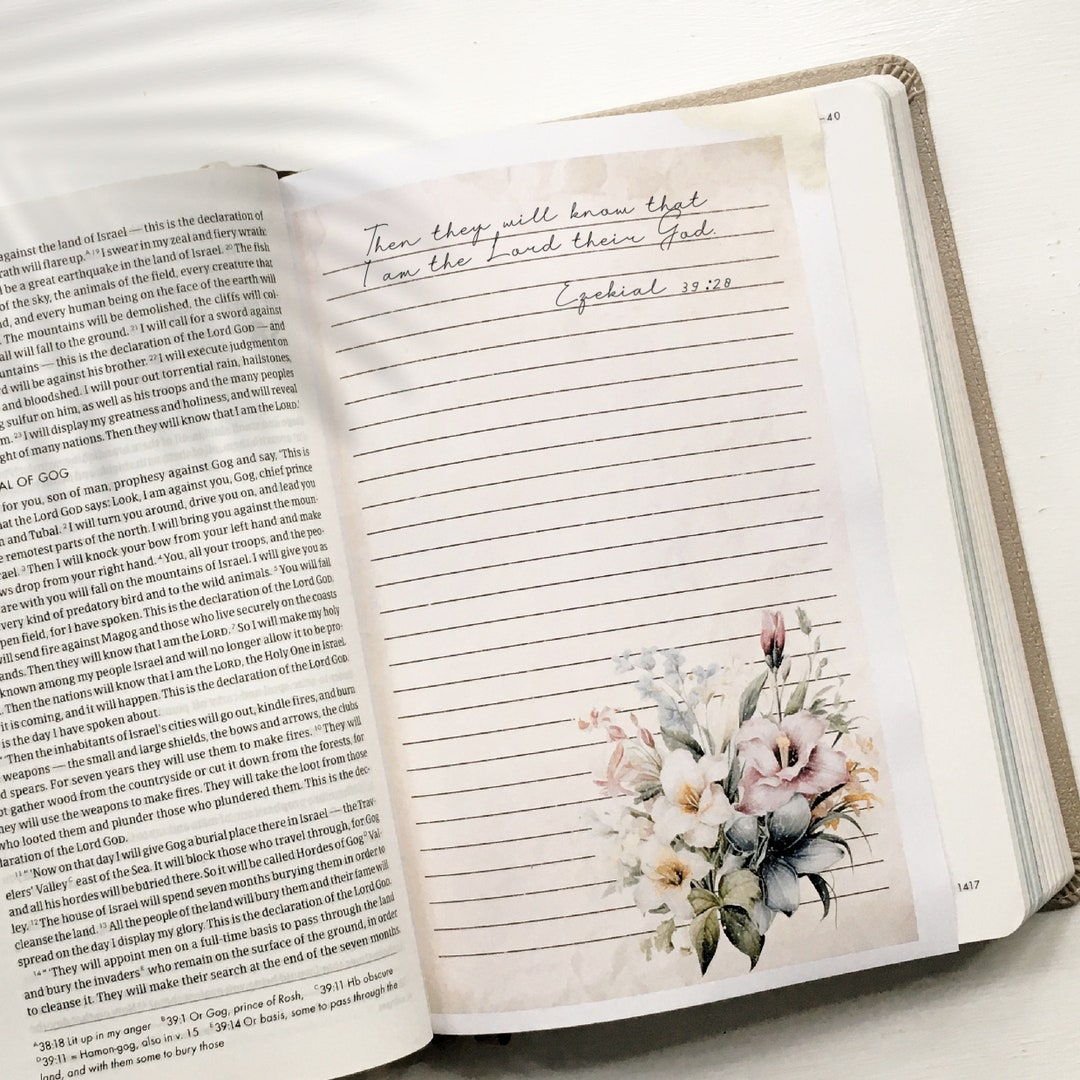 against the land of Israel — this is the declaration of
rath will flare up.ᴬ,¹⁹ I swear in my zeal and fiery wrath:
l be a great earthquake in the land of Israel. ²⁰ The fish
of the sky, the animals of the field, every creature that
d, and every human being on the face of the earth will
. The mountains will be demolished, the cliffs will col-
all will fall to the ground. ²¹ I will call for a sword against
untains — this is the declaration of the Lord GOD — and
d will be against his brother. ²² I will execute judgment on
and bloodshed. I will pour out torrential rain, hailstones,
g sulfur on him, as well as his troops and the many peoples
m. ²³ I will display my greatness and holiness, and will reveal
ght of many nations. Then they will know that I am the LORD.'
AL OF GOG
for you, son of man, prophesy against Gog and say, 'This is
hat the Lord GOD says: Look, I am against you, Gog, chief prince
h and Tubal. ² I will turn you around, drive you on, and lead you
e remotest parts of the north. I will bring you against the moun-
rael. ³ Then I will knock your bow from your left hand and make
ws drop from your right hand. ⁴ You, all your troops, and the peo-
are with you will fall on the mountains of Israel. I will give you as
very kind of predatory bird and to the wild animals. ⁵ You will fall
pen field, for I have spoken. This is the declaration of the Lord GOD.
will send fire against Magog and those who live securely on the coasts
ands. Then they will know that I am the LORD. ⁷ So I will make my holy
known among my people Israel and will no longer allow it to be pro-
. Then the nations will know that I am the LORD, the Holy One in Israel.
it is coming, and it will happen. This is the declaration of the Lord GOD.
is the day I have spoken about.
" 'Then the inhabitants of Israel's cities will go out, kindle fires, and burn
weapons — the small and large shields, the bows and arrows, the clubs
d spears. For seven years they will use them to make fires. ¹⁰ They will
ot gather wood from the countryside or cut it down from the forests, for
hey will use the weapons to make fires. They will take the loot from those
who looted them and plunder those who plundered them. This is the dec-
laration of the Lord GOD.
¹¹ " 'Now on that day I will give Gog a burial place there in Israel — the Trav-
elers' Valleyᶜ east of the Sea. It will block those who travel through, for Gog
and all his hordes will be buried there. So it will be called Hordes of Gogᴰ Val-
ley. ¹² The house of Israel will spend seven months burying them in order to
cleanse the land. ¹³ All the people of the land will bury them and their fame will
spread on the day I display my glory. This is the declaration of the Lord GOD.
¹⁴ " 'They will appoint men on a full-time basis to pass through the land
and bury the invadersᴱ who remain on the surface of the ground, in order
to cleanse it. They will make their search at the end of the seven months.
ᴬ38:18 Lit up in my anger ᴮ39:1 Or Gog, prince of Rosh, ᶜ39:11 Hb obscure
ᴰ39:11 = Hamon-gog, also in v. 15 ᴱ39:14 Or basis, some to pass through the
land, and with them some to bury those
-40
Then they will know that
I am the Lord their God.
Ezekial 39:28
1417